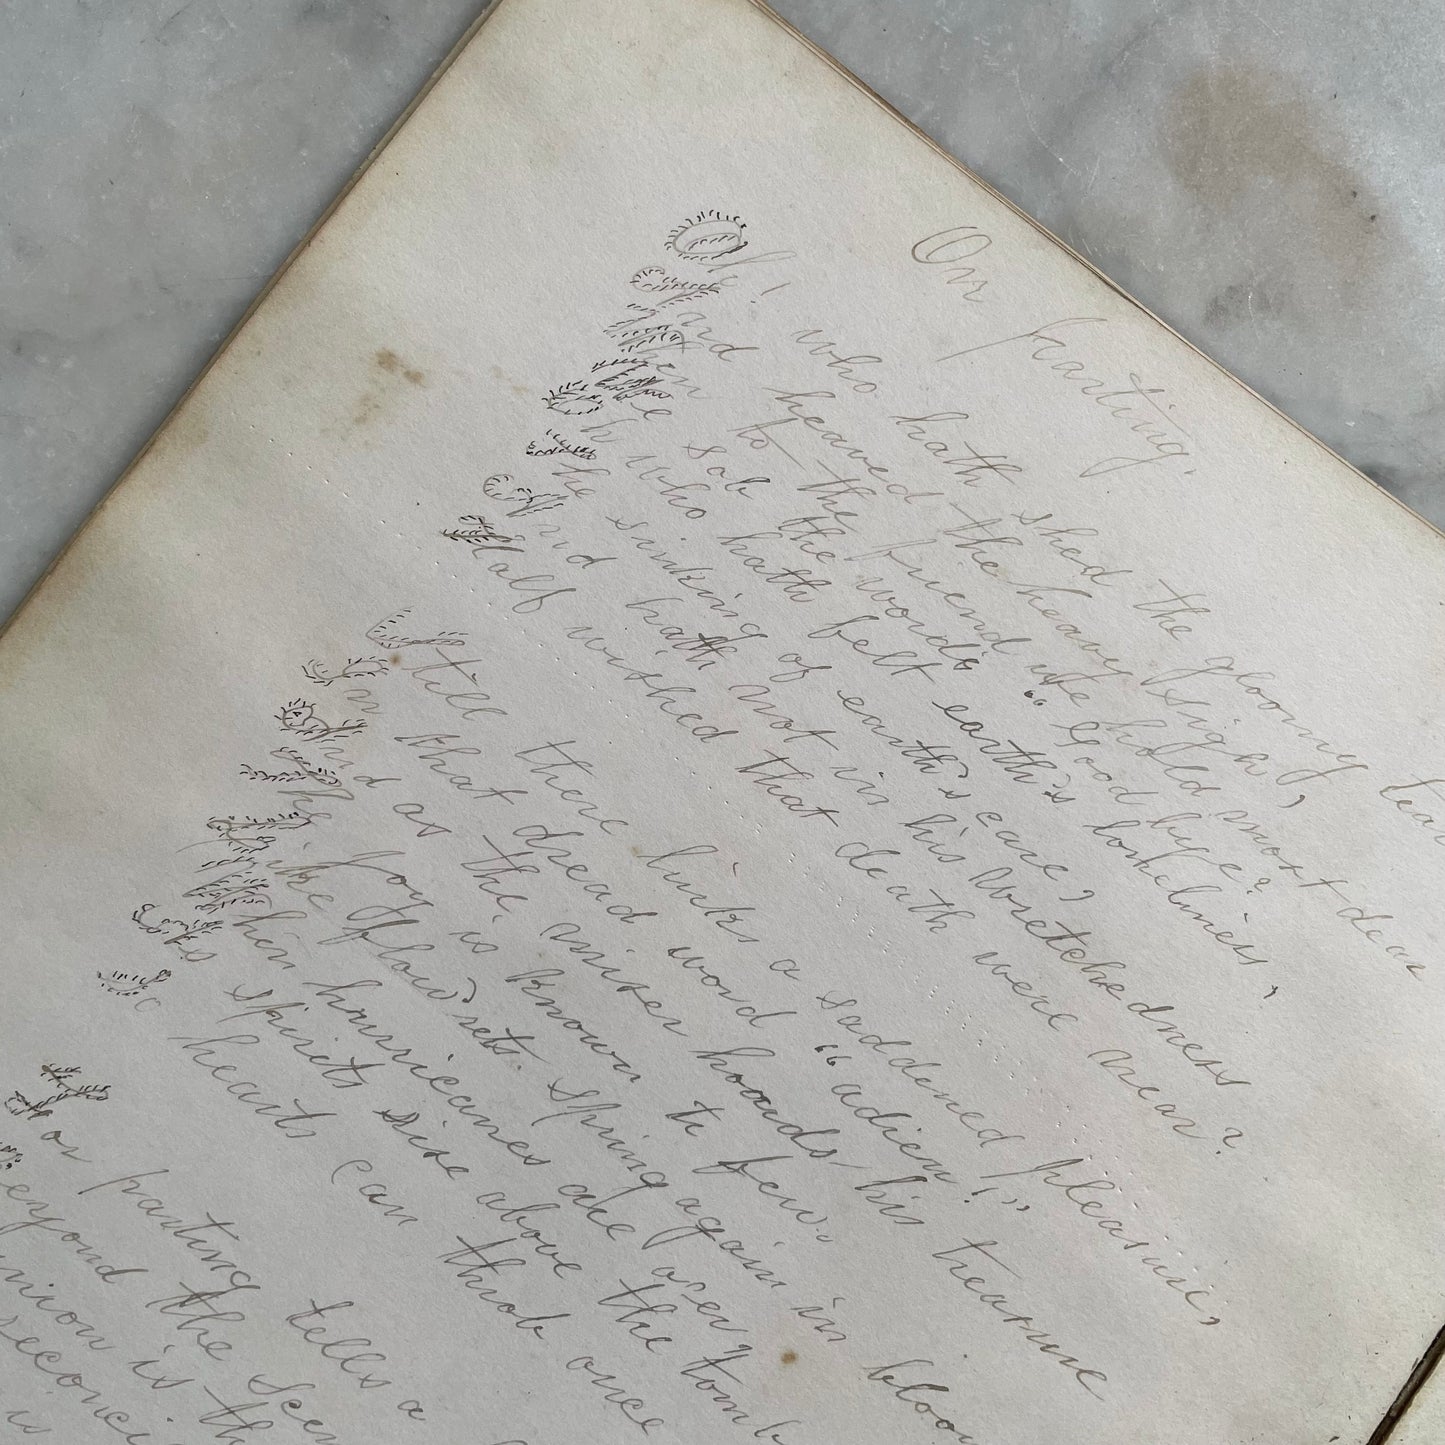 On Parting.
Oh! who hath shed the gloomy tear
And heaved the heavy sigh,
When to the friend we hold most dear
We sob the words “Good bye?
Oh who hath felt earth's loneliness,
The sinking of earth's care,
And hath not in his wretchedness
Half wished that death were near?
Still there links a saddened pleasure,
In that dread word “adieu!”
And as the miser hoards his treasure
The joy is known to few.
Like flow'rets spring again in bloom
When hurricanes are o'er,
As spirits rise above the tomb
So hearts can throb once
For parting tells a
Beyond the scen
Union is th
reconci
is